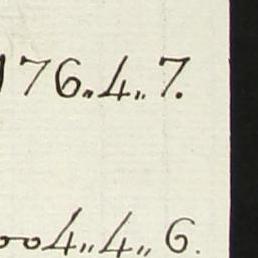 176„4„7.
004„4„6.